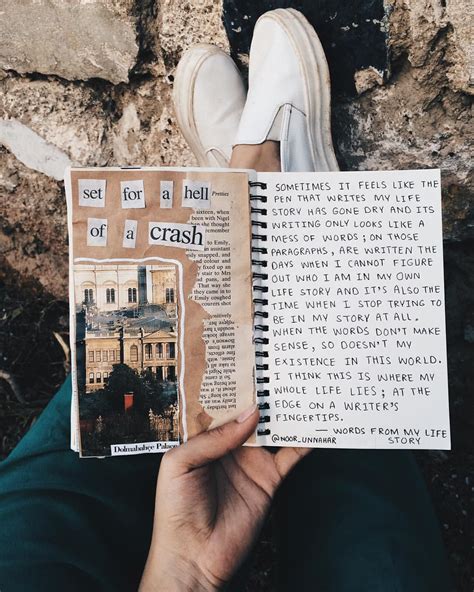 set for a hell
of a crash
Pretties
sixteen, when
been with Nigel
remember
to Emily,
in assistant
snapped, and
fixed up an
stay with us
That was why
they came in to
Emily coughed
colours shot
Dolmabahçe Palace
SOMETIMES IT FEELS LIKE THE
PEN THAT WRITES MY LIFE
STORY HAS GONE DRY AND ITS
WRITING ONLY LOOKS LIKE A
MESS OF WORDS; ON THOSE
PARAGRAPHS, ARE WRITTEN THE
DAYS WHEN I CANNOT FIGURE
OUT WHO I AM IN MY OWN
LIFE STORY AND IT'S ALSO THE
TIME WHEN I STOP TRYING TO
BE IN MY STORY AT ALL.
WHEN THE WORDS DON'T MAKE
SENSE, SO DOESN'T MY
EXISTENCE IN THIS WORLD.
I THINK THIS IS WHERE MY
WHOLE LIFE LIES; AT THE
EDGE ON A WRITER'S
FINGERTIPS.
— WORDS FROM MY LIFE
STORY
@NOOR_UNNAHAR